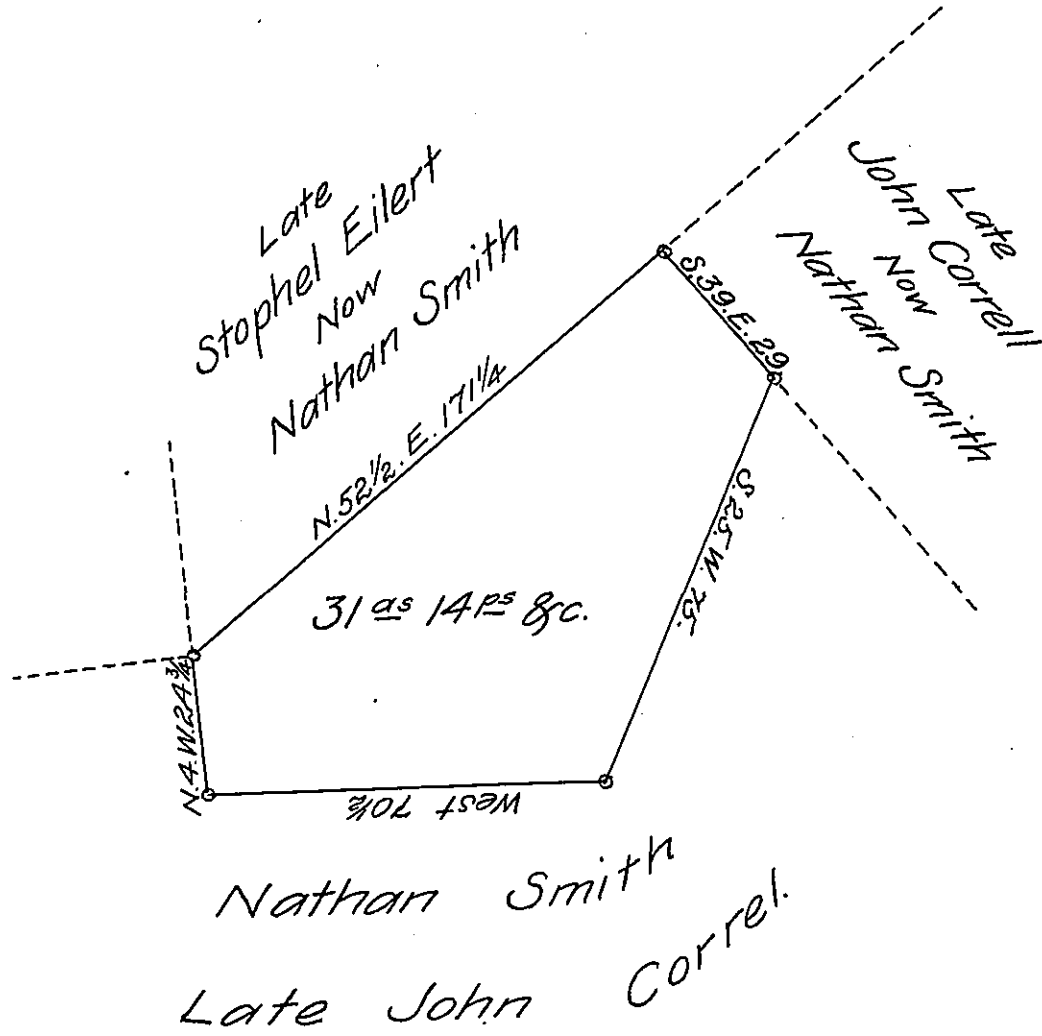 Late
Stophel Eilert
Now
Nathan Smith
Late
John Correll
Now
Nathan Smith
S.39.E.29
N.52½.E.171¼
S.25.W.75.
31 as 14 ps &c.
N.4.W.24¾
West 70½
Nathan Smith
Late John Correl.